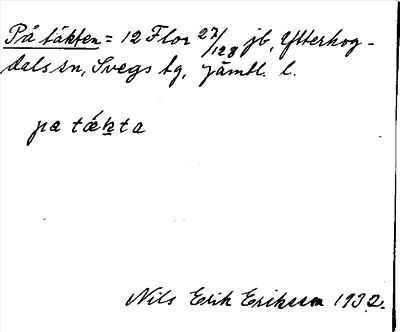 På täkten = 12 Flor 27/128 jb, Ytterhog-
dals sn, Svegs tg, Jämtl. l.
pa tǽkta
Nils Erik Eriksson 1932.